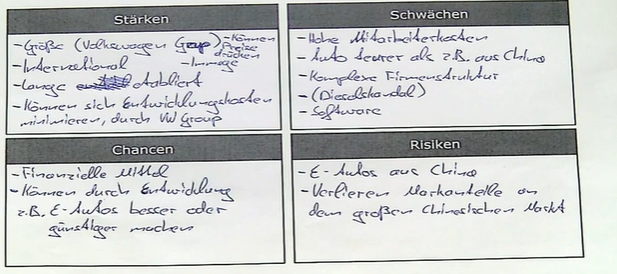 Stärken
- Größe (Volkswagen Group) - Können Preise drücken
- International - Immage
- Lange etabliert
- Können sich Entwicklungskosten
minimieren, durch VW Group
Schwächen
- Hohe Mitarbeiterkosten
- Auto teurer als z.B. aus China
- Komplexe Firmenstruktur
- (Dieselskandal)
- Software
Chancen
- Finanzielle Mittel
- Können durch Entwicklung
z.B. E-Autos besser oder
günstiger machen
Risiken
- E-Autos aus China
- Verlieren Markanteile an
dem großen Chinesischen Markt